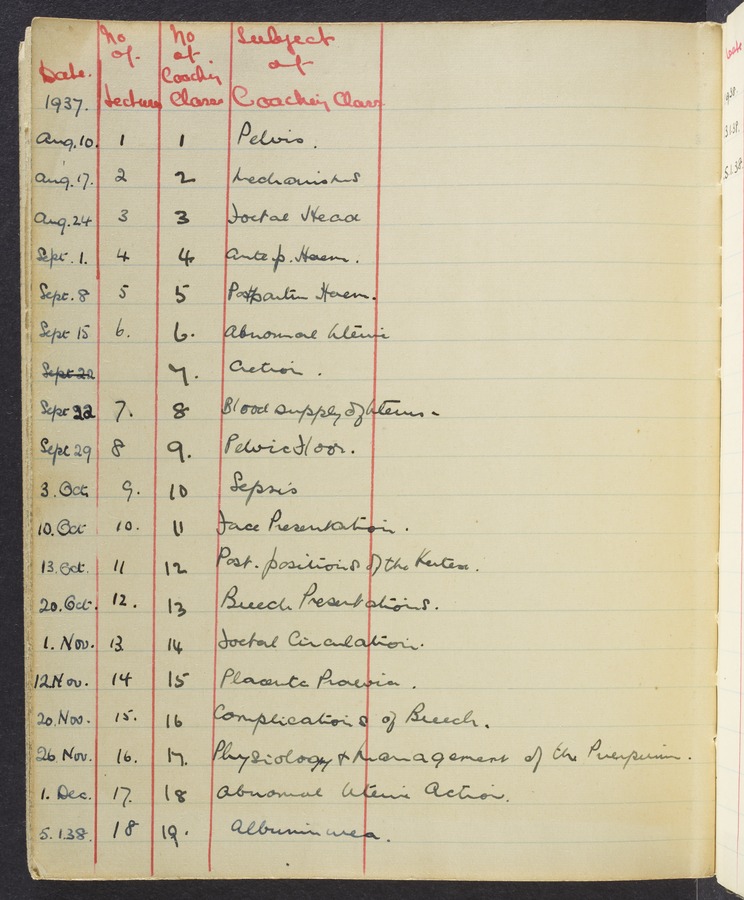 Date. No of. Lectures No of Coaching Classes Subject of Coaching Class
1937.
Aug.10. 1 1 Pelvis.
Aug.17. 2 2 Mechanisms
Aug.24 3 3 Foetal Head
Sept.1. 4 4 Ante p. Haem.
Sept.8 5 5 Postpartum Haem.
Sept 15 6. 6. Abnormal Uterine
Sept 22 7. Action.
Sept 22 7. 8 Blood supply of Uterus.
Sept 29 8 9. Pelvic Floor.
3. Oct 9. 10 Sepsis
10. Oct 10. 11 Face Presentation.
13. Oct. 11 12 Post. positions of the Vertex.
20. Oct. 12. 13 Breech Presentations.
1. Nov. 13 14 Foetal Circulation.
12 Nov. 14 15 Placenta Praevia.
20. Nov. 15. 16 Complications of Breech.
26 Nov. 16. 17. Physiology & Management of the Puerperium.
1. Dec. 17. 18 Abnormal Uterine Action.
5.1.38. 18 19. Albuminurea.
Date
31.38.
5.1.38